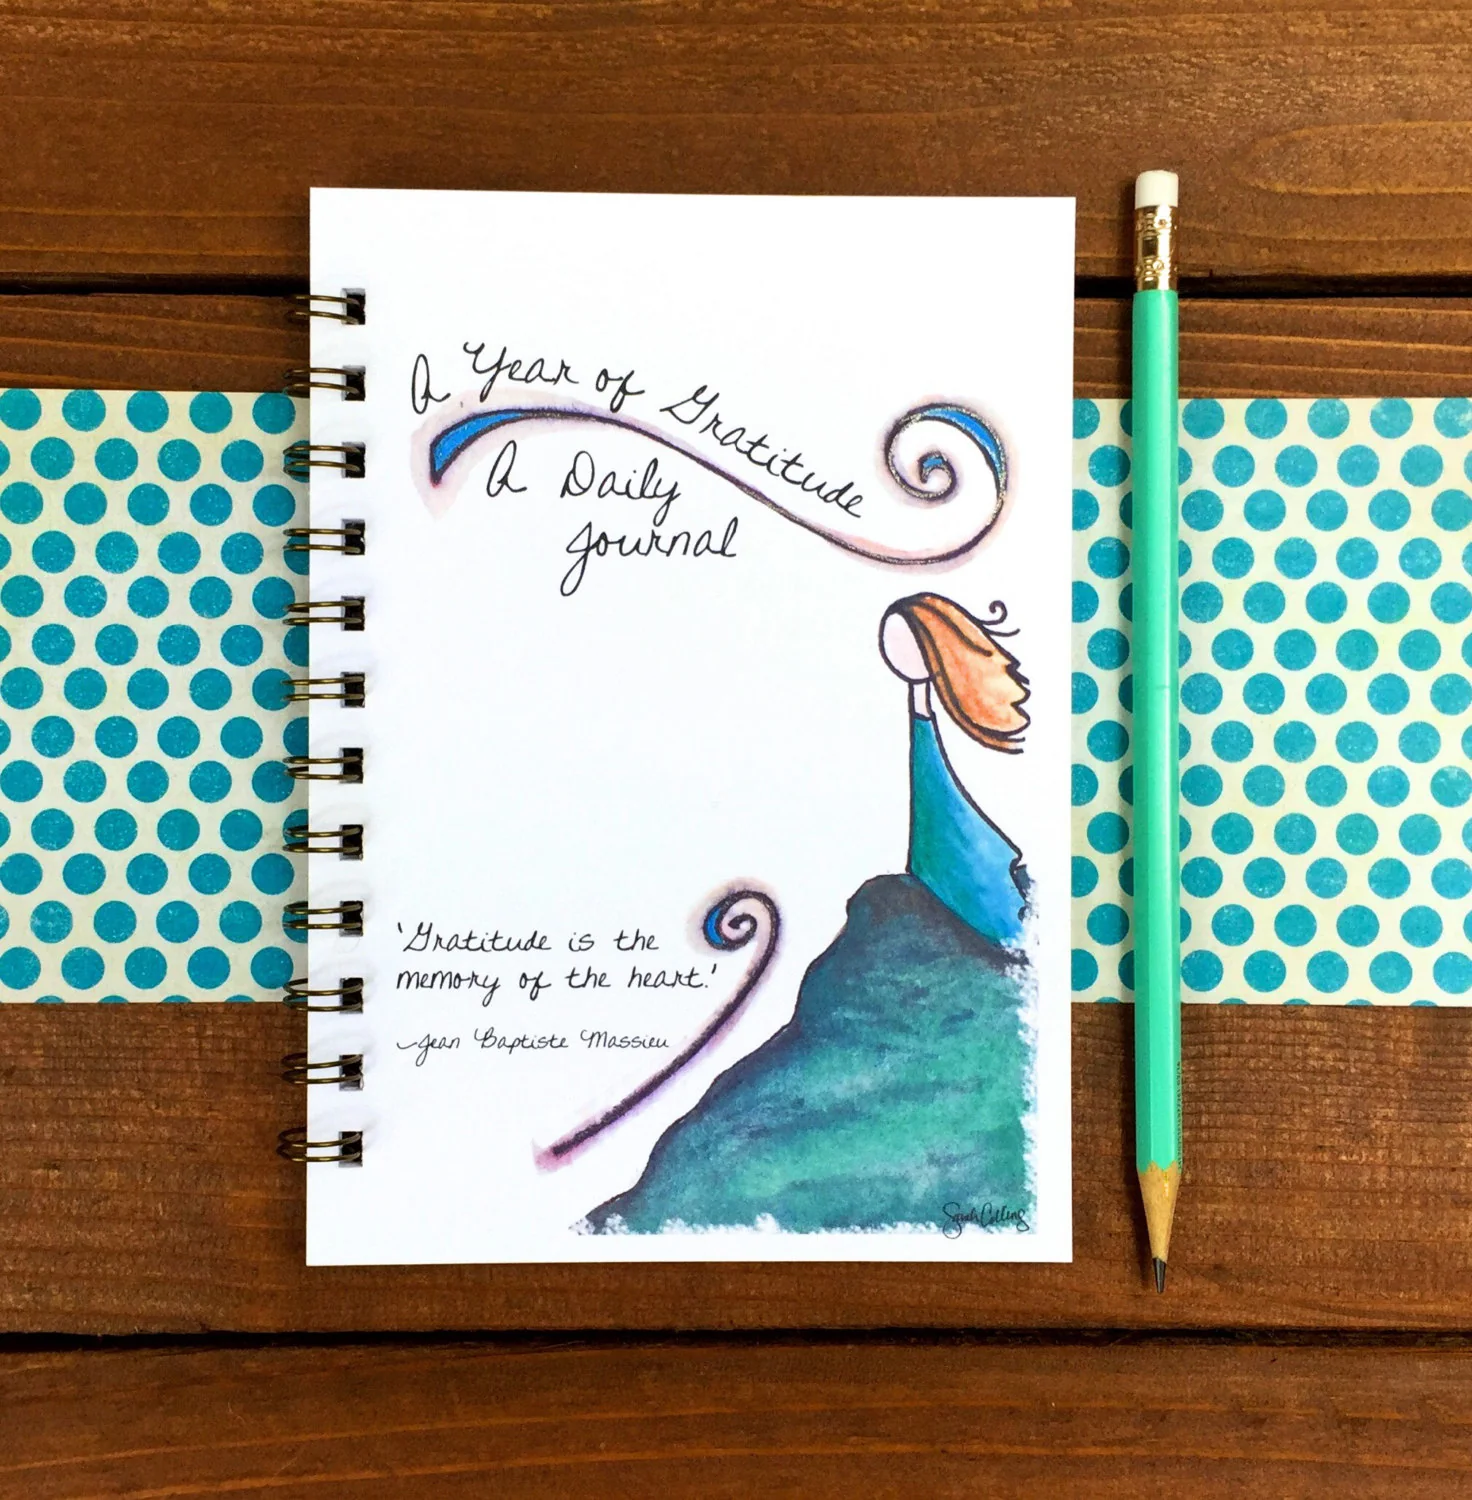 A Year of Gratitude
A Daily
Journal
'Gratitude is the
memory of the heart.'
~Jean Baptiste Massieu
Sarah Collins